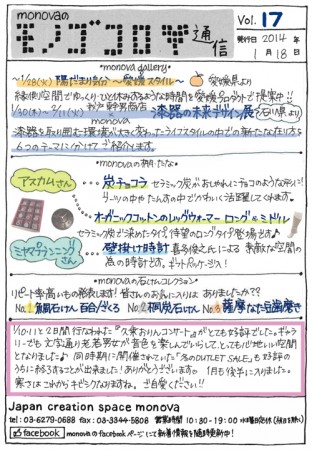 monovaの
モノゴコロ 通信
Vol. 17
発行日 2014年
1月18日
•monova gallery•
~1/28(火) 陽だまり気分 ~愛媛スタイル~ 愛媛県より
縁側空間でゆっくりひと休みするような時間を愛媛プロダクトで提案中!!
1/30(木)~2/11(火) 漆器の未来デザイン展 石川県より
漆器を取り囲む環境が大きく変わったライフスタイルの中での新たな在り方を
6つのテーマに分けてご紹介します。
•monovaの新たな•
アスカムさん
炭チョコラ セラミック炭がおしゃれにチョコのような形に!
ブーツの中やたんすの中でかわいく活躍してくれます。
オーガニックコットンのレッグウォーマー ロング&ミドル
セラミック炭で染めたタイプ、待望のロングタイプ登場です♪
ミヤマプランニングさん
壁掛け時計 喜多俊之氏による素敵な空間
の為の時計です。ギフトパッケージ入!
•monovaの石けんコレクション•
リピート率高いもの発表します!皆さんのお気に入りは ありましたか??
No.1 鯛石けん 百合/ざくろ No.2 桐炭石けん No.3 薩摩なた豆歯磨き
1/10・11と2日間行なわれた『久楽おりんコンサート』がとても好評でした。ギャラ
リーでも文字通り老若男女が音色を楽しんでいらして、とても心地いい空間
となりました♪ 同時期に開催されていた「冬のOUTLET SALE」も好評の
うちに終了することが出来ました!ありがとうございます。 1月も後半に入りました。
寒さはこれからキビシクなりますね。ご自愛ください!!
Japan creation space monova
tel:03-6279-0688 fax:03-3344-5808 営業時間 10:30-19:00 水曜日定休(祝日を除く)
facebook monovaのfacebookページにて新着情報を随時更新中!